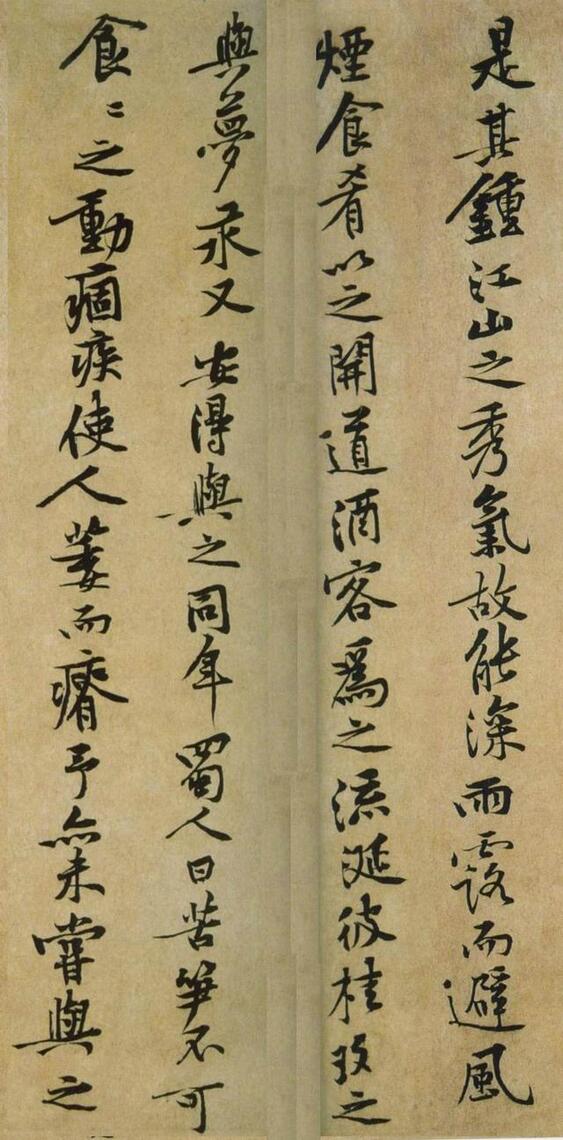 是其鍾江山之秀氣故能深雨露而避風
煙食肴以之開道酒客爲之流涎彼桂玫之
與夢汞又安得與之同年蜀人曰苦笋不可
食〻之動痼疾使人萎而瘠予亦未嘗與之